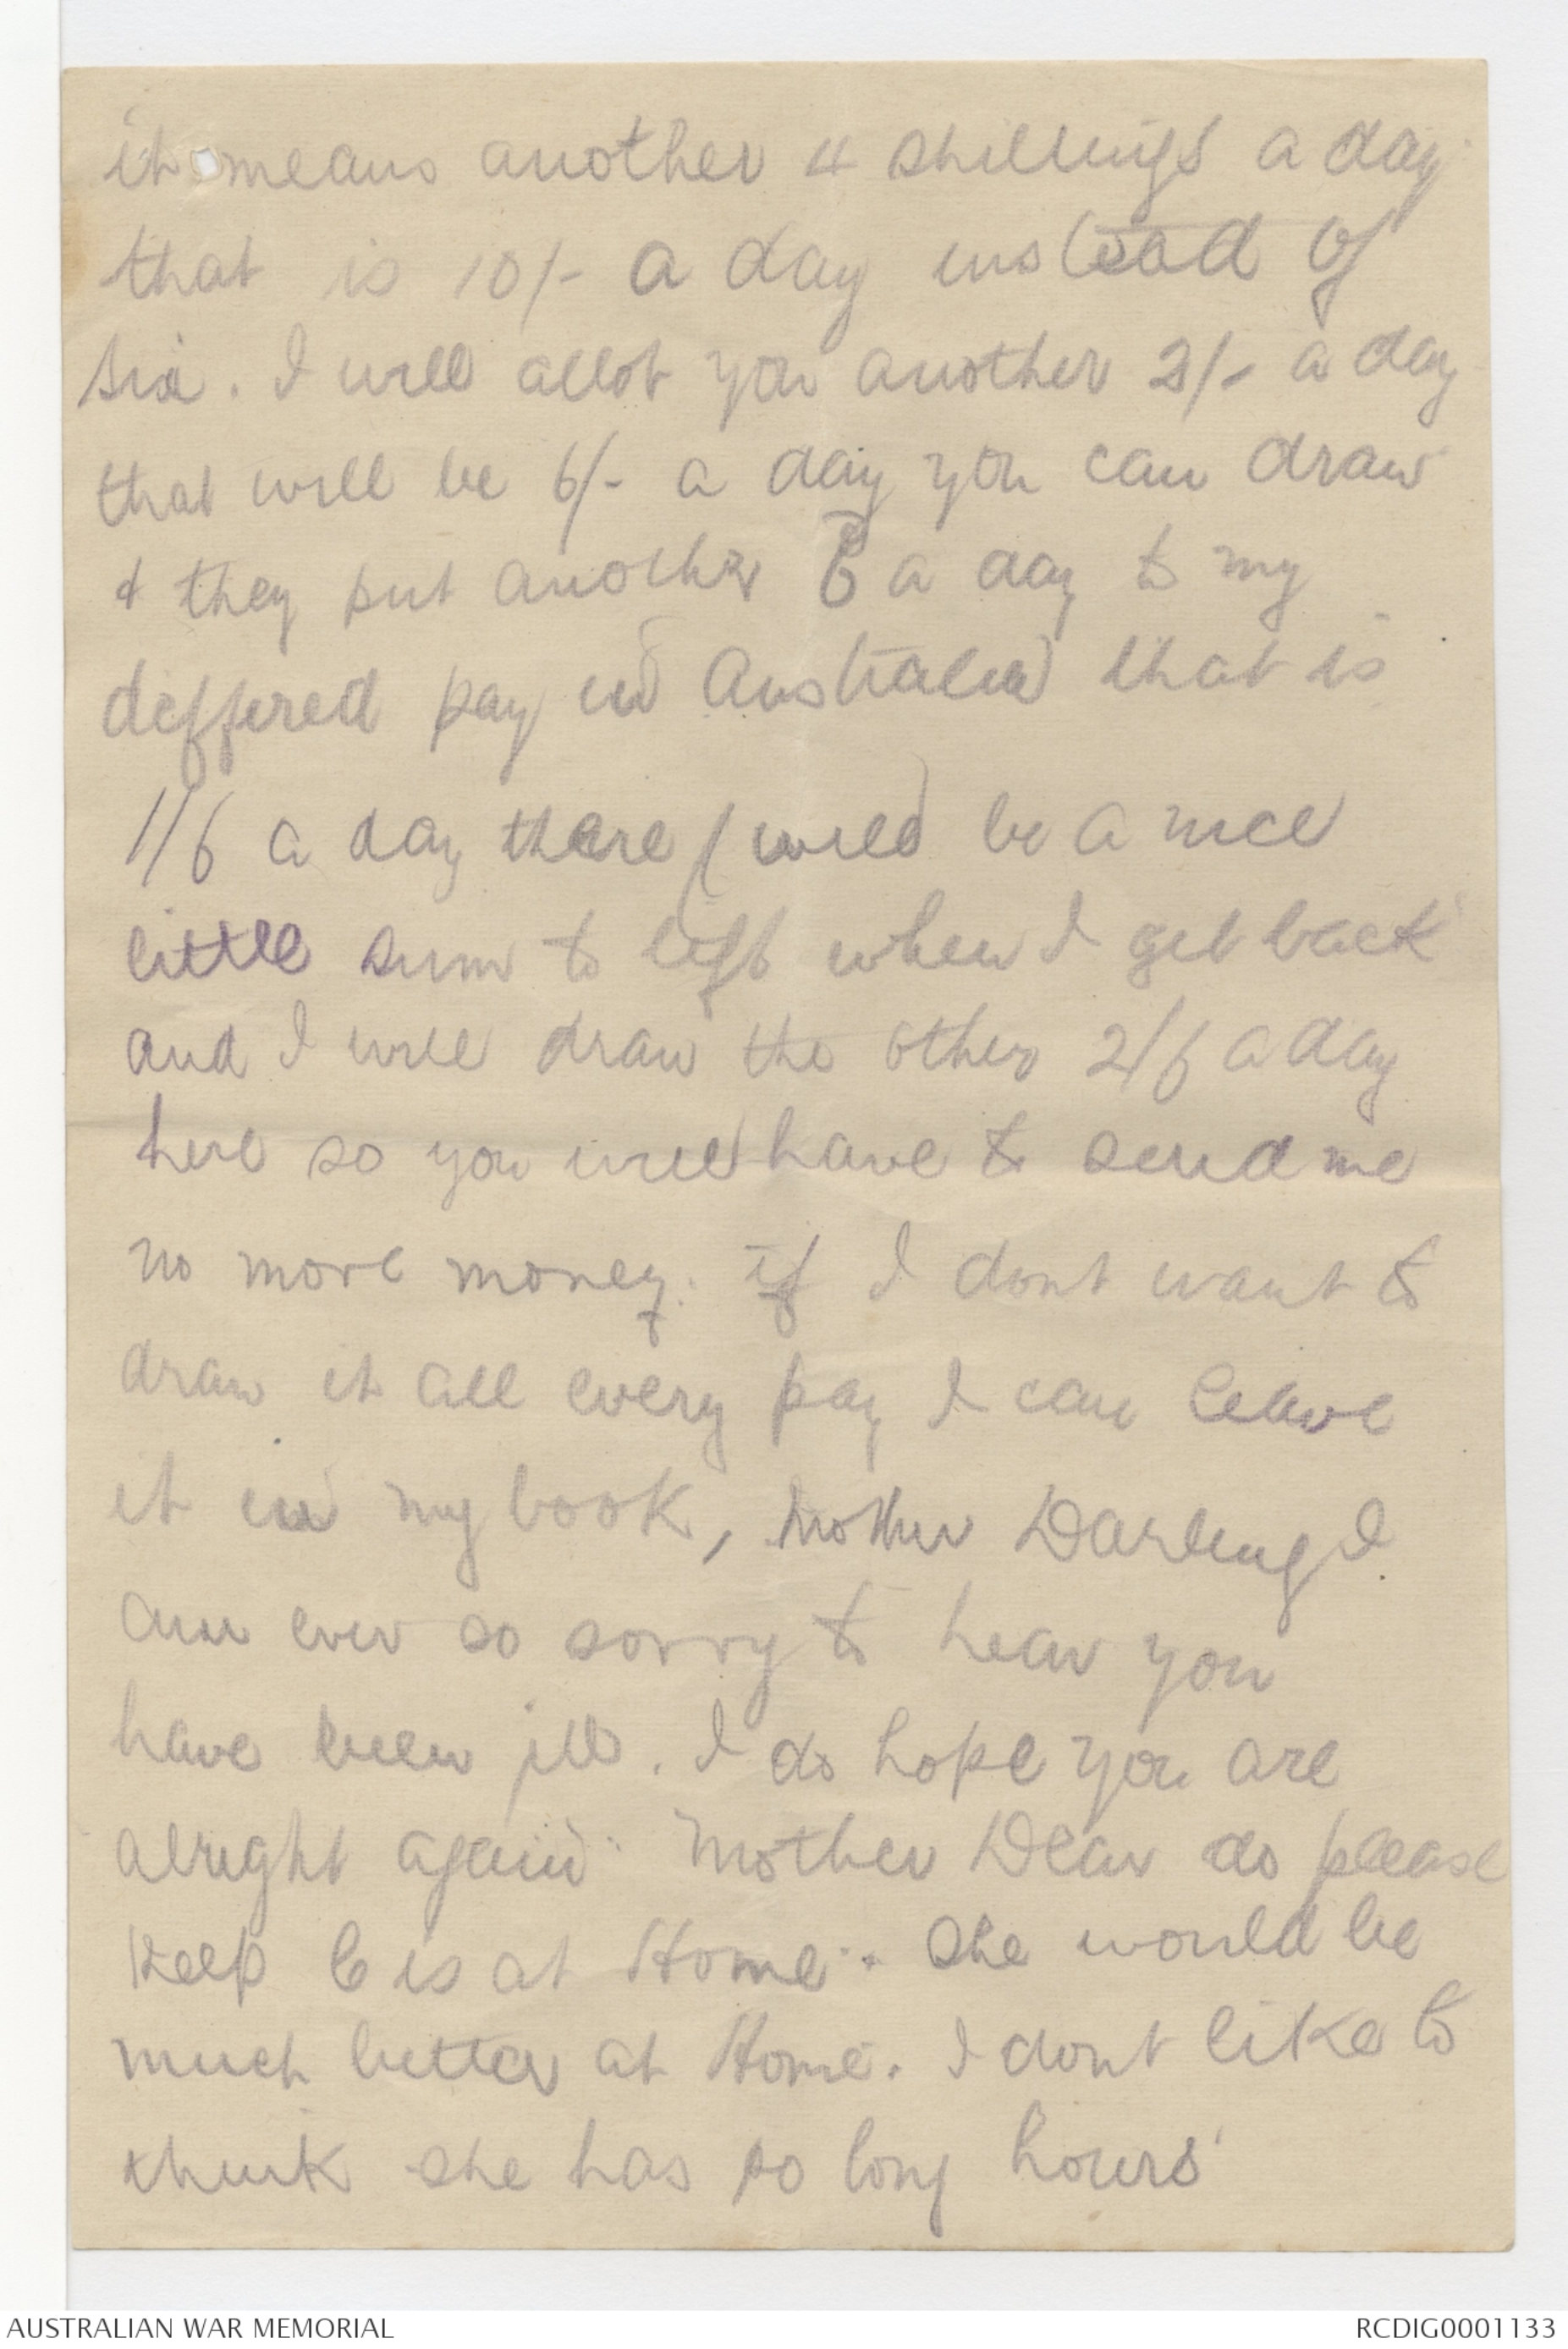 it means another 4 shillings a day
that is 10/- a day instead of
six. I will allot you another 2/- a day
that will be 6/- a day you can draw
& they put another 6 a day to my
deffered pay in Australia that is
1/6 a day there will be a nice
little sum to lift when I get back
and I will draw the other 2/6 a day
here so you will have to send me
no more money. if I dont want to
draw it all every pay I can leave
it in my book, Mother Darling I
am ever so sorry to hear you
have been ill. I do hope you are
alright again. Mother Dear do please
keep Cis at Home. She would be
much better at Home. I dont like to
think she has so long hours
AUSTRALIAN WAR MEMORIAL
RCDIG0001133